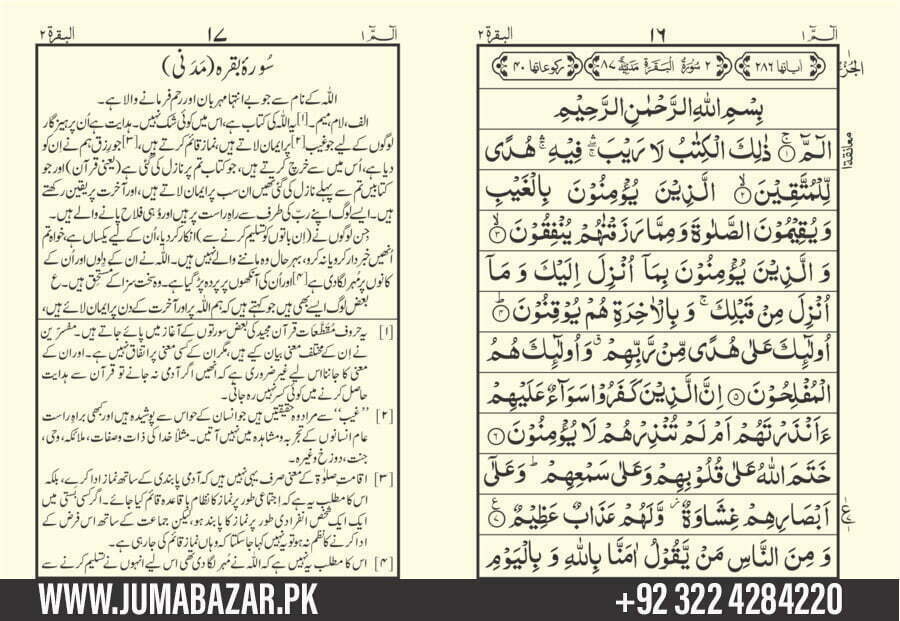 الٓمّٓ ١
١٦
البقرة ٢
اٰیاتها ٢٨٦
٢ سُوْرَةُ الْبَقَرَةِ مَدَنِیَّةٌ ٨٧
رکوعاتها ٤٠
بِسْمِ اللّٰهِ الرَّحْمٰنِ الرَّحِیْمِ
الٓمّٓ ۚ﴿١﴾ ذٰلِكَ الْكِتٰبُ لَا رَیْبَ ۛۚ فِیْهِ ۛۚ هُدًی
لِّلْمُتَّقِیْنَ ۙ﴿٢﴾ الَّذِیْنَ یُؤْمِنُوْنَ بِالْغَیْبِ
وَ یُقِیْمُوْنَ الصَّلٰوةَ وَ مِمَّا رَزَقْنٰهُمْ یُنْفِقُوْنَ ۙ﴿٣﴾
وَ الَّذِیْنَ یُؤْمِنُوْنَ بِمَاۤ اُنْزِلَ اِلَیْكَ وَ مَاۤ
اُنْزِلَ مِنْ قَبْلِكَ ۚ وَ بِالْاٰخِرَةِ هُمْ یُوْقِنُوْنَ ؕ﴿٤﴾
اُولٰٓئِكَ عَلٰی هُدًی مِّنْ رَّبِّهِمْ ۗ وَ اُولٰٓئِكَ هُمُ
الْمُفْلِحُوْنَ ﴿٥﴾ اِنَّ الَّذِیْنَ كَفَرُوْا سَوَآءٌ عَلَیْهِمْ
ءَاَنْذَرْتَهُمْ اَمْ لَمْ تُنْذِرْهُمْ لَا یُؤْمِنُوْنَ ﴿٦﴾
خَتَمَ اللّٰهُ عَلٰی قُلُوْبِهِمْ وَ عَلٰی سَمْعِهِمْ ؕ وَ عَلٰۤی
اَبْصَارِهِمْ غِشَاوَةٌ ؗ وَّ لَهُمْ عَذَابٌ عَظِیْمٌ ﴿٧﴾
وَ مِنَ النَّاسِ مَنْ یَّقُوْلُ اٰمَنَّا بِاللّٰهِ وَ بِالْیَوْمِ
الٓمّٓ ١
١٧
البقرة ٢
سُورۂ بقرہ (مَدَنی)
اللہ کے نام سے جو بے انتہا مہربان اور رحم فرمانے والا ہے۔
الف، لام، میم۔[۱] یہ اللہ کی کتاب ہے، اس میں کوئی شک نہیں۔ ہدایت ہے اُن پرہیزگار
لوگوں کے لیے جو غیب[۲] پر ایمان لاتے ہیں، نماز قائم کرتے ہیں،[۳] جو رزق ہم نے ان کو
دیا ہے، اُس میں سے خرچ کرتے ہیں، جو کتاب تم پر نازل کی گئی ہے (یعنی قرآن) اور جو
کتابیں تم سے پہلے نازل کی گئی تھیں ان سب پر ایمان لاتے ہیں، اور آخرت پر یقین رکھتے
ہیں۔ ایسے لوگ اپنے ربّ کی طرف سے راہِ راست پر ہیں اور وُہی فلاح پانے والے ہیں۔
جن لوگوں نے (اِن باتوں کو تسلیم کرنے سے) انکار کردیا، اُن کے لیے یکساں ہے، خواہ تم
اُنھیں خبردار کرو یا نہ کرو، بہرحال وہ ماننے والے نہیں ہیں۔ اللہ نے ان کے دِلوں اور اُن کے
کانوں پر مُہر لگادی ہے[۴] اور اُن کی آنکھوں پر پردہ پڑ گیا ہے۔ وہ سخت سزا کے مستحق ہیں۔ ع
بعض لوگ ایسے بھی ہیں جو کہتے ہیں کہ ہم اللہ پر اور آخرت کے دن پر ایمان لائے ہیں،
[۱] یہ حروفِ مُقطّعات قرآن مجید کی بعض سورتوں کے آغاز میں پائے جاتے ہیں۔ مفسّرین
نے اِن کے مختلف معنی بیان کیے ہیں، مگر ان کے کسی معنی پر اتفاق نہیں ہے۔ اور ان کے
معنی کا جاننا اس لیے غیر ضروری ہے کہ انھیں اگر آدمی نہ جانے تو قرآن سے ہدایت
حاصل کرنے میں کوئی کسر نہیں رہ جاتی۔
[۲] ’’غیب‘‘ سے مراد وہ حقیقتیں ہیں جو انسان کے حواس سے پوشیدہ ہیں اور کبھی براہِ راست
عام انسانوں کے تجربہ و مشاہدہ میں نہیں آتیں۔ مثلاً خدا کی ذات و صفات، ملائکہ، وحی،
جنت، دوزخ وغیرہ۔
[۳] اقامتِ صلوٰۃ کے معنی صرف یہی نہیں ہیں کہ آدمی پابندی کے ساتھ نماز ادا کرے، بلکہ
اس کا مطلب یہ ہے کہ اجتماعی طور پر نماز کا نظام باقاعدہ قائم کیا جائے۔ اگر کسی بستی میں
ایک ایک شخص انفرادی طور پر نماز کا پابند ہو، لیکن جماعت کے ساتھ اس فرض کے
ادا کرنے کا نظم نہ ہو تو یہ نہیں کہا جاسکتا کہ وہاں نماز قائم کی جارہی ہے۔
[۴] اس کا مطلب یہ نہیں ہے کہ اللہ نے مُہر لگادی تھی اس لیے انہوں نے تسلیم کرنے سے
WWW.JUMABAZAR.PK
+92 322 4284220